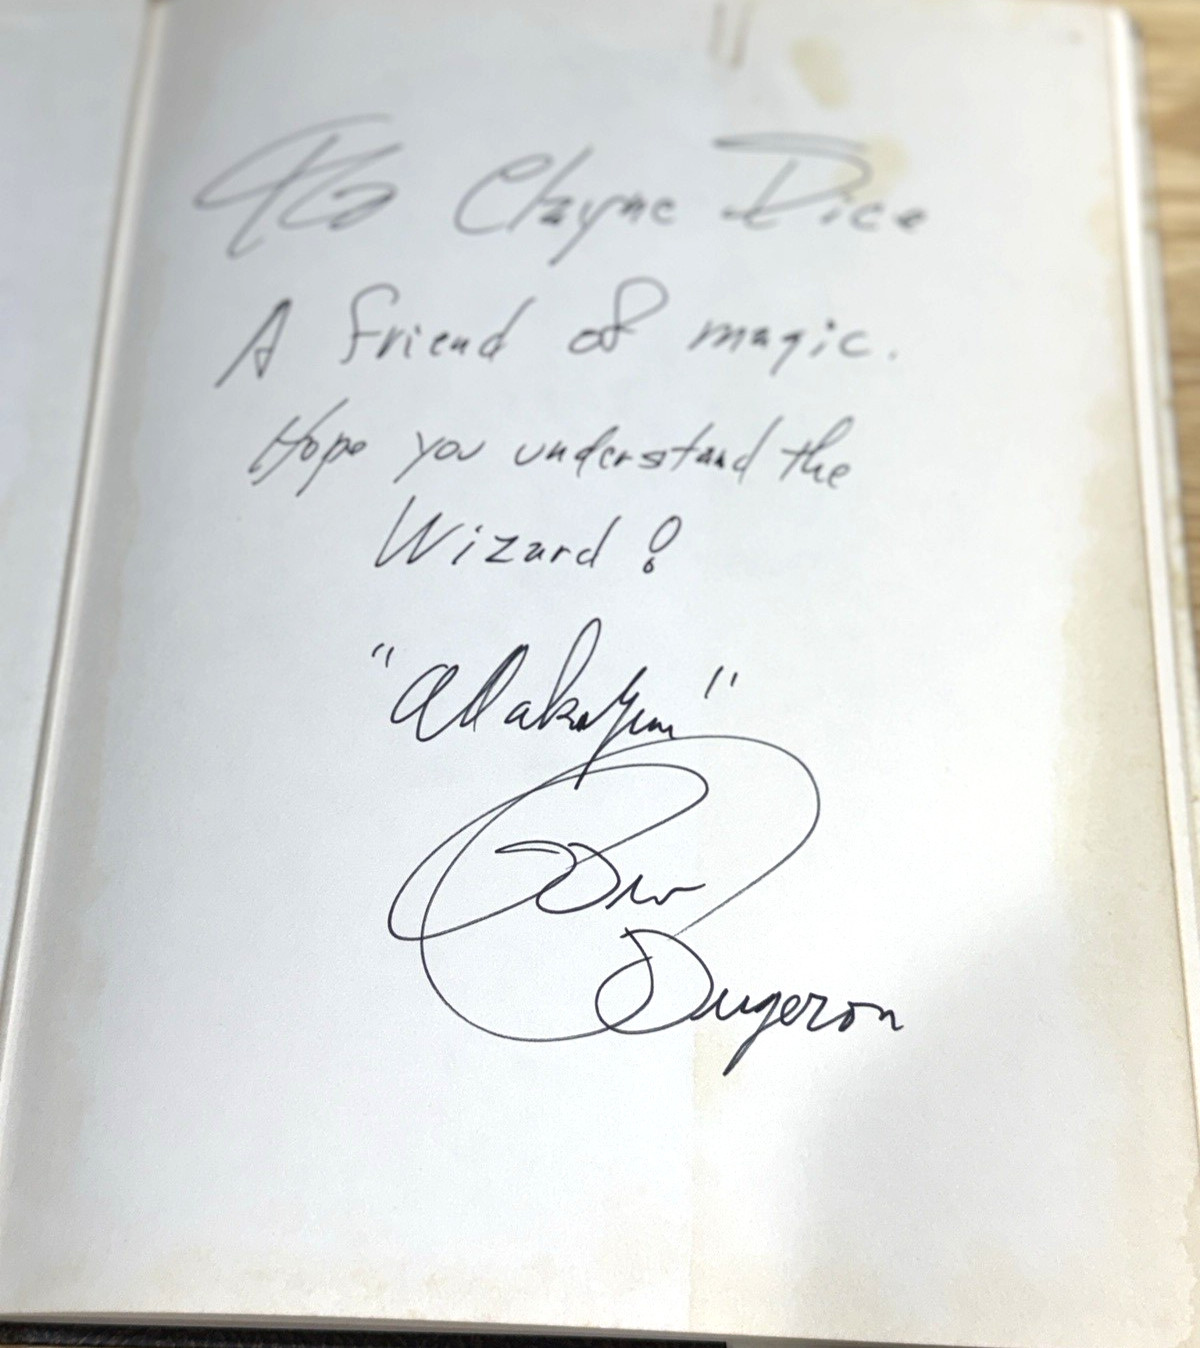 To Clayne Dice
A friend of magic.
Hope you understand the
Wizard!
"Allakazum"
Dugeron